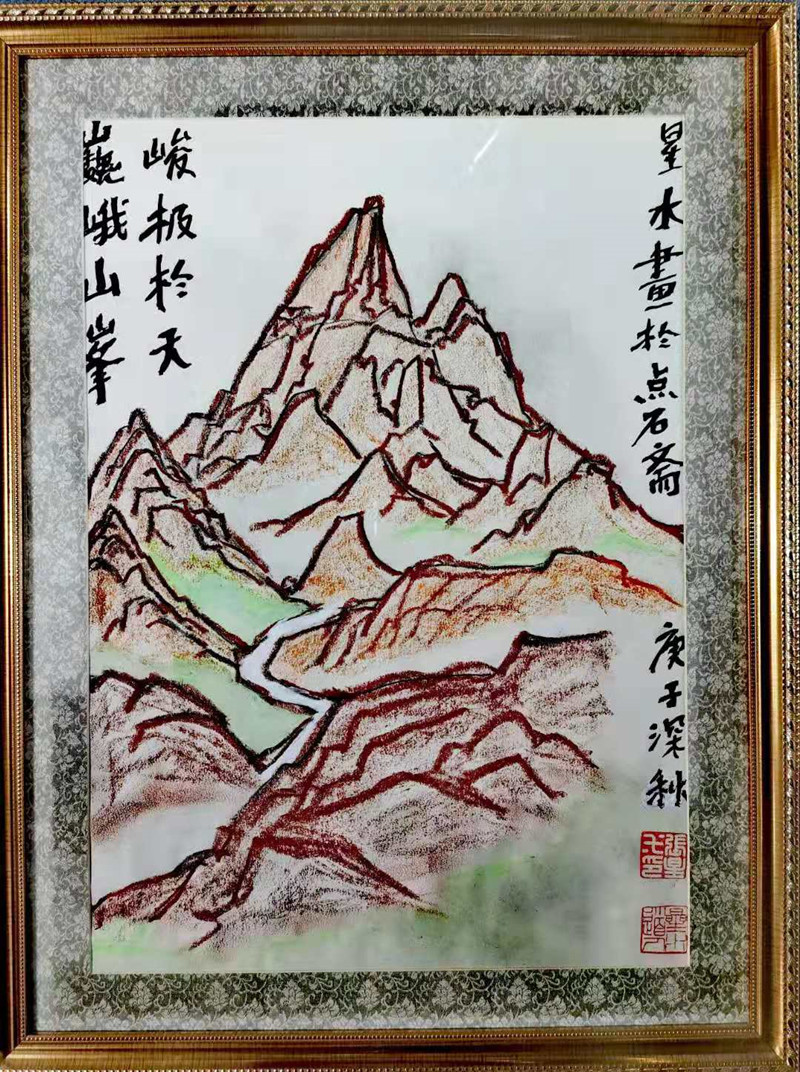 星水畫於点石斋
庚子深秋
峻极於天
巍峨山峯